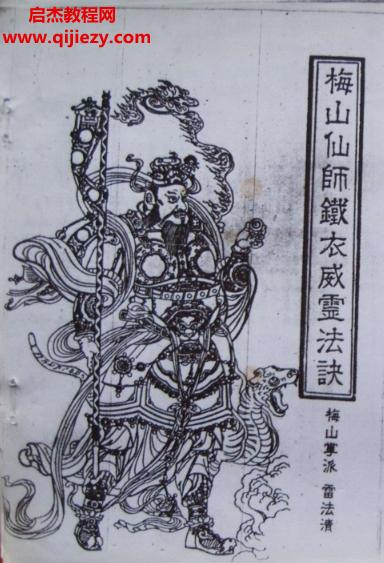 启杰教程网
www.qijiezy.com
梅山仙師鐵衣威靈法訣
梅山掌派 雷法清